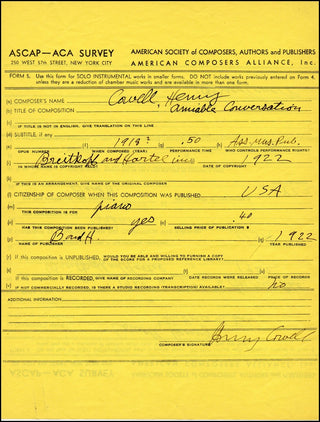 ASCAP—ACA SURVEY
250 WEST 57th STREET, NEW YORK CITY
AMERICAN SOCIETY of COMPOSERS, AUTHORS and PUBLISHERS
AMERICAN COMPOSERS ALLIANCE, Inc.
FORM S. Use this form for SOLO INSTRUMENTAL works in smaller forms. DO NOT include works previously entered on Form 4,
unless they are a reduction of chamber music works and are independently performable in this medium.
(a) COMPOSER'S NAME Cowell, Henry
(b) TITLE OF COMPOSITION Amiable Conversation
IF TITLE IS NOT IN ENGLISH, GIVE TRANSLATION ON THIS LINE
(d) SUBTITLE, if any
1913? .50 Ass. Mus. Pub.
OPUS NUMBER WHEN COMPOSED (YEAR) PERFORMANCE TIME WHO CONTROLS PERFORMANCE RIGHTS?
Breitkopf and Hartel inc 1922
IN WHOSE NAME IS COPYRIGHT HELD? DATE OF COPYRIGHT
IF THIS IS AN ARRANGEMENT, GIVE NAME OF THE ORIGINAL COMPOSER
CITIZENSHIP OF COMPOSER WHEN THIS COMPOSITION WAS PUBLISHED USA
piano
THIS COMPOSITION IS FOR
yes .40
HAS THIS COMPOSITION BEEN PUBLISHED? SELLING PRICE OF PUBLICATION $
B and H. 1922
NAME OF PUBLISHER YEAR PUBLISHED
If this composition is UNPUBLISHED, WOULD YOU BE ABLE AND WILLING TO FURNISH A COPY
OF THE SCORE FOR A PROPOSED REFERENCE LIBRARY?
If this composition is RECORDED, GIVE NAME OF RECORDING COMPANY DATE RECORDS WERE RELEASED PRICE OF RECORDS
no
IF NOT COMMERCIALLY RECORDED, IS THERE A STUDIO RECORDING (TRANSCRIPTION) AVAILABLE?
ADDITIONAL INFORMATION
Henry Cowell
COMPOSER'S SIGNATURE